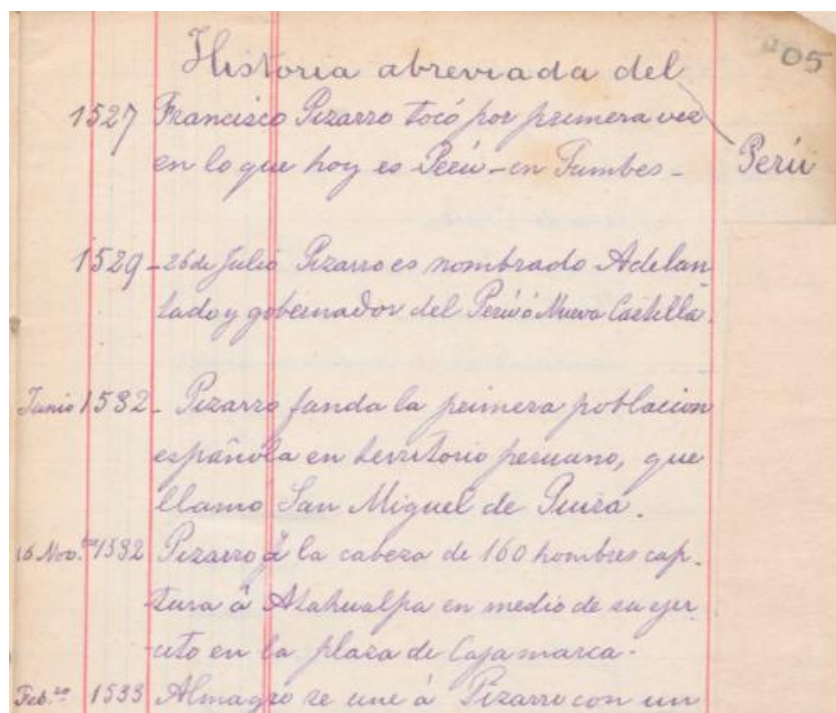 205
Historia abreviada del
Perú
1527 Francisco Pizarro tocó por primera vez
en lo que hoy es Perú - en Tumbes -
1529 - 26 de Julio Pizarro es nombrado Adelan
tado y gobernador del Perú ó Nueva Castilla.
Junio 1532 - Pizarro funda la primera poblacion
española en territorio peruano, que
llamó San Miguel de Piura.
16 Nov.bre 1532 Pizarro á la cabeza de 160 hombres cap-
tura á Atahualpa en medio de su ejer
cito en la plaza de Cajamarca.
Feb.ro 1533 Almagro se une á Pizarro con un